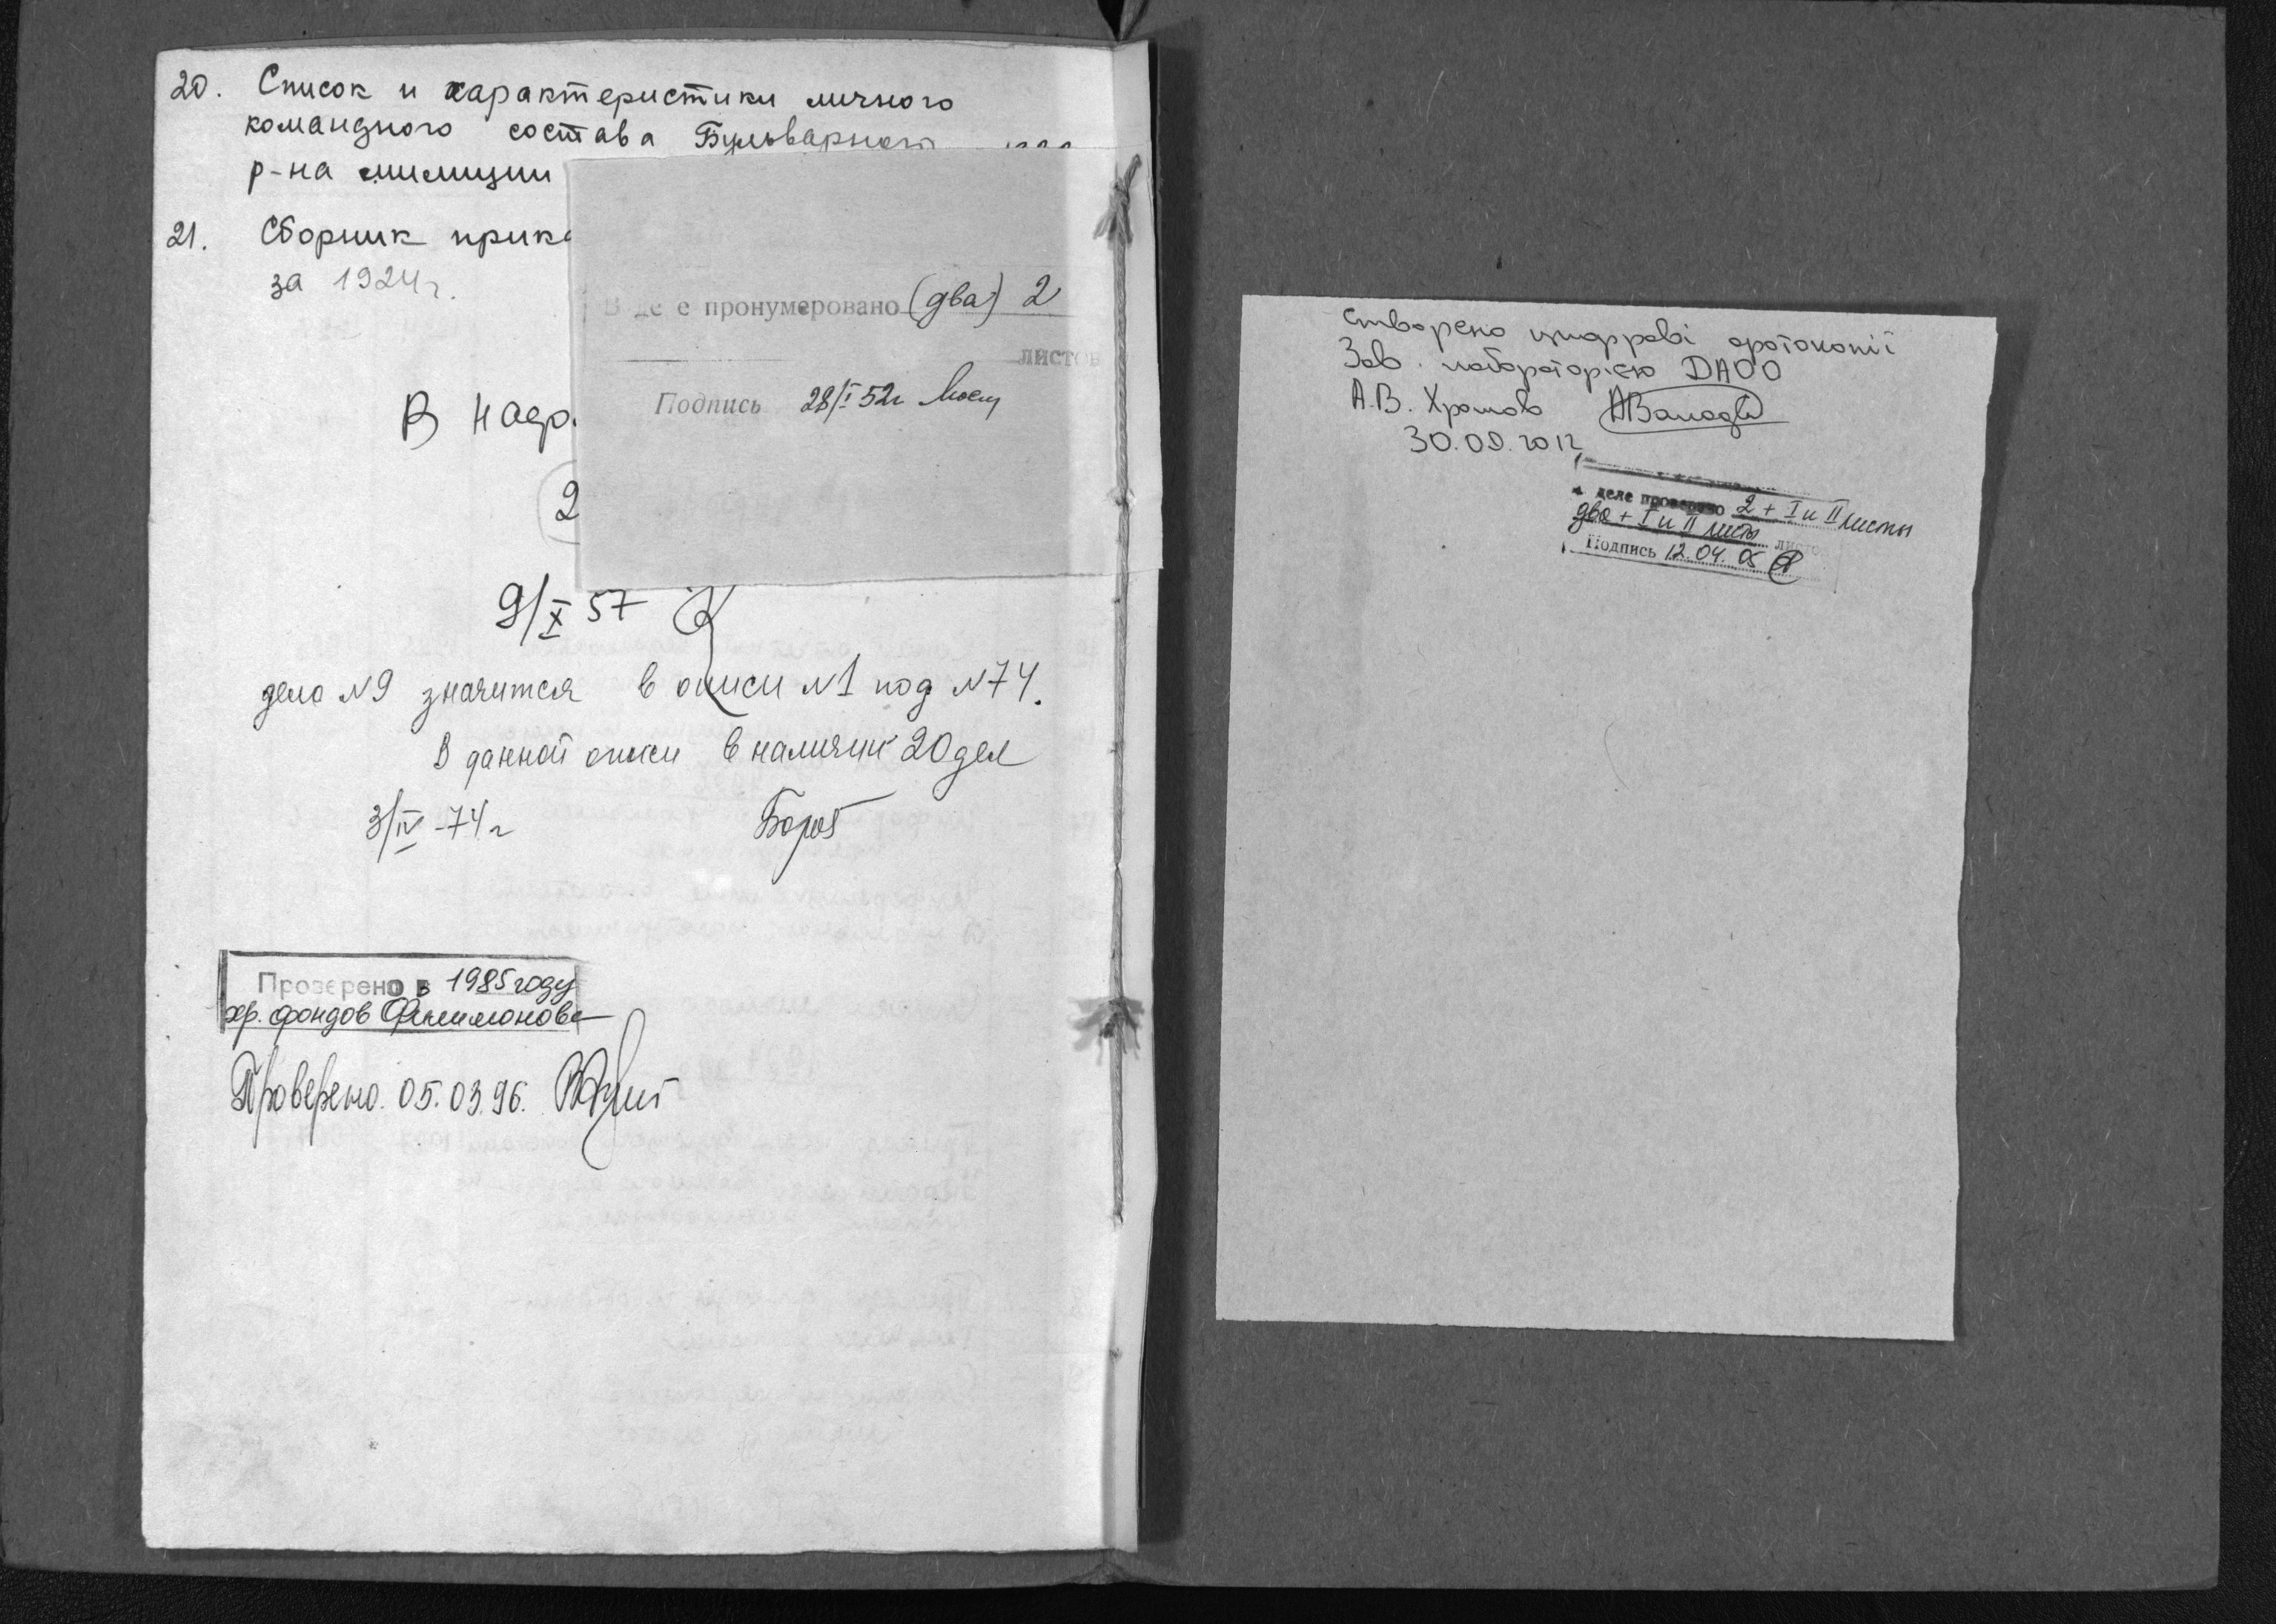 20. Список и характеристики личного
командного состава Бульварного
р-на милиции
21. Сборник прика
за 1924 г.
В де е пронумеровано (два) 2
листов
Подпись 28/I 52г
В
2
9/X 57
дело №9 значится в описи №1 под №74.
В данной описи в наличии 20 дел
3/IV-74 г
Проверено в 1985 году
хр. фондов Филимонова
Проверено. 05.03.96.
Створено цифрові фотокопії
Зав. лабораторією ДАОО
А.В.
30.09.2012
деле проверено 2 + I и II листы
два + I и II листы листов
Подпись 12.04.05